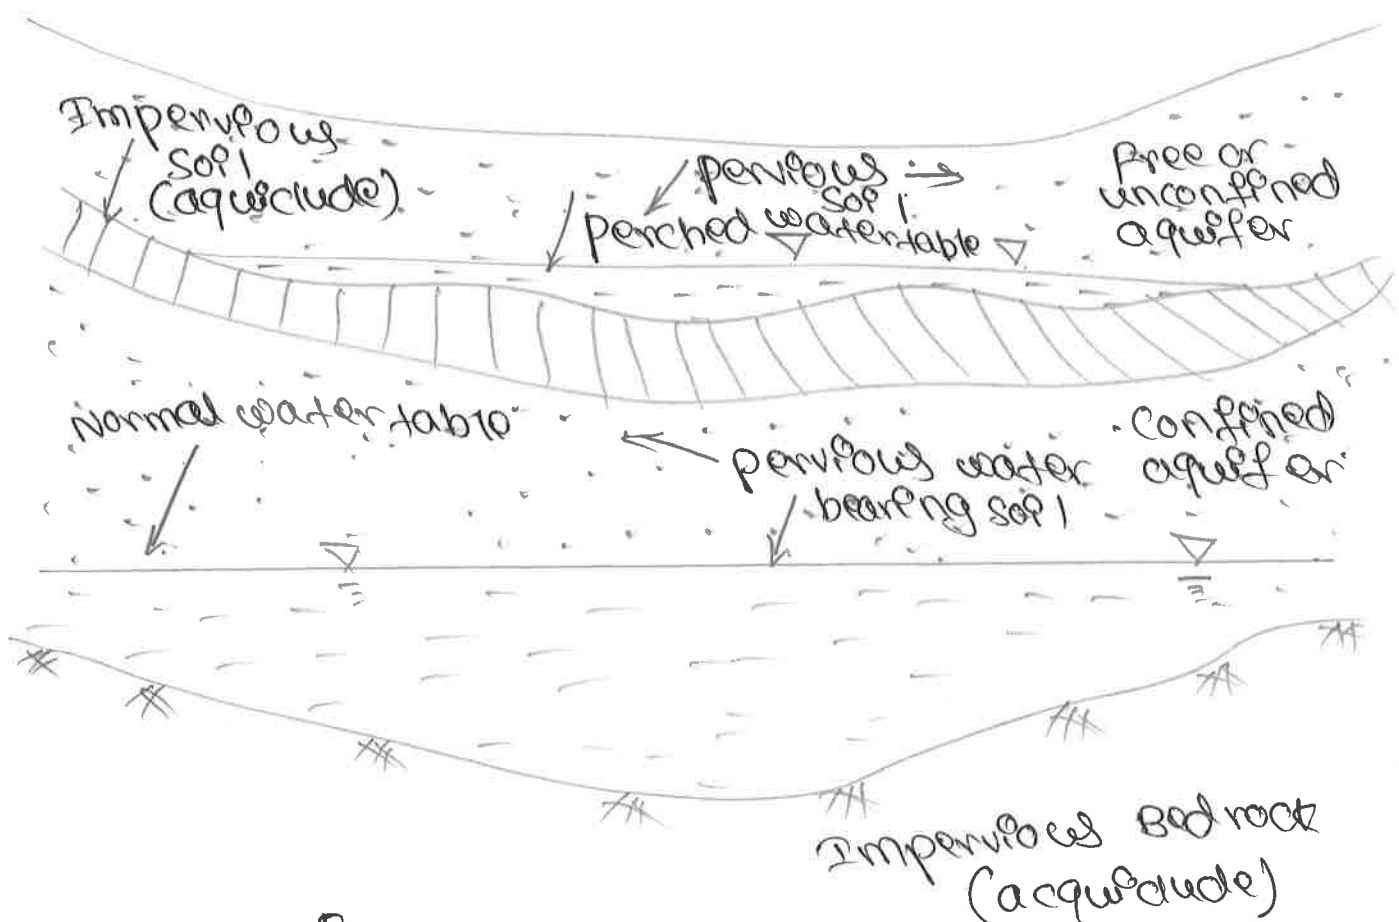 Impervious
soil
(aquiclude)
pervious
soil
perched watertable
free or
unconfined
aquifer
Normal water table
pervious water
bearing soil
confined
aquifer
Impervious Bedrock
(acquiclude)